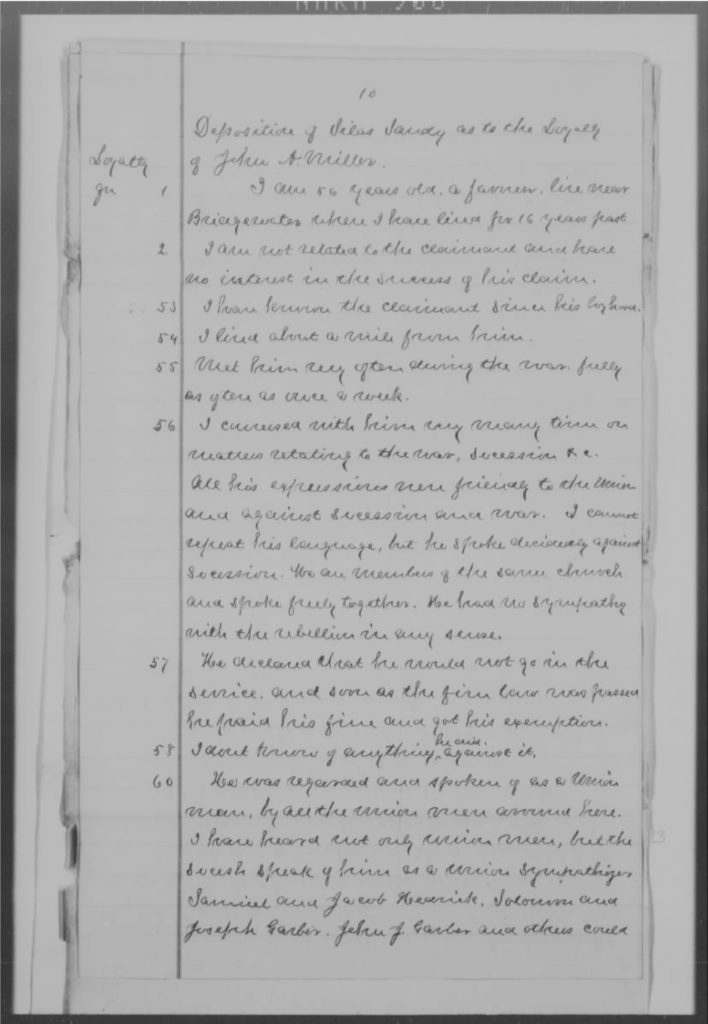 10
Deposition of Silas Sandy as to the Loyalty
Loyalty of John A. Miller.
qu 1 I am 56 years old. a farmer. live near
Bridgewater where I have lived for 16 years past
2 I am not related to the claimant and have
no interest in the success of his claim.
53 I have known the claimant since his boyhood.
54 I lived about a mile from him.
55 Met him very often during the war. fully
as often as once a week.
56 I conversed with him very many times on
matters relating to the war, Secession &c.
All his expressions were friendly to the Union
and against secession and war. I cannot
repeat his language, but he spoke decidedly against
Secession. We are members of the same church
and spoke freely together. He had no sympathy
with the rebellion in any sense.
57 He declared that he would not go in the
service. and soon as the fine law was passed
he paid his fine and got his exemption.
58 I dont know of anything he did against it.
60 He was regarded and spoken of as a Union
man, by all the Union men around here.
I have heard not only Union men, but the
secesh speak of him as a Union sympathizer
Samuel and Jacob Hedrick. Solomon and
Joseph Garber. John J. Garber and others could